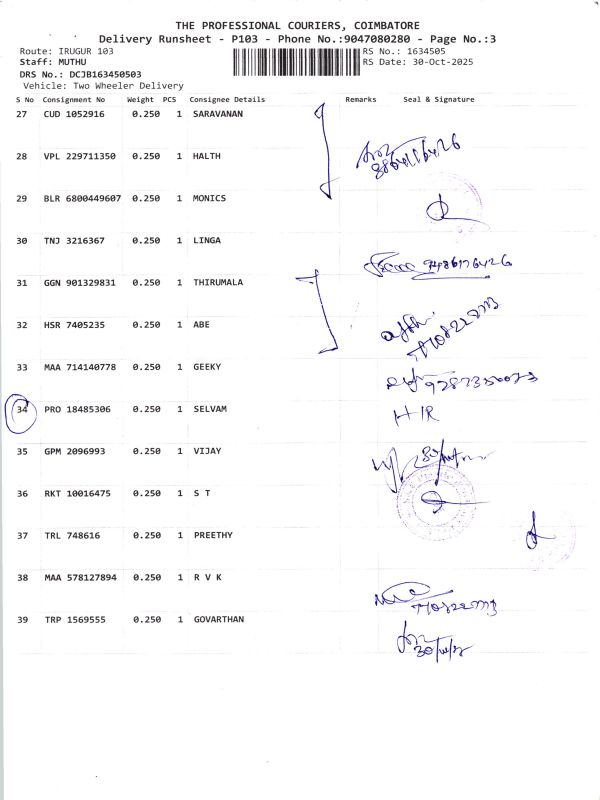 THE PROFESSIONAL COURIERS, COIMBATORE
Delivery Runsheet - P103 - Phone No.:9047080280 - Page No.:3
Route: IRUGUR 103 RS No.: 1634505
Staff: MUTHU RS Date: 30-Oct-2025
DRS No.: DCJB163450503
Vehicle: Two Wheeler Delivery
S No Consignment No Weight PCS Consignee Details Remarks Seal & Signature
27 CUD 1052916 0.250 1 SARAVANAN
28 VPL 229711350 0.250 1 HALTH
29 BLR 6800449607 0.250 1 MONICS
30 TNJ 3216367 0.250 1 LINGA
31 GGN 901329831 0.250 1 THIRUMALA
32 HSR 7405235 0.250 1 ABE
33 MAA 714140778 0.250 1 GEEKY
34 PRO 18485306 0.250 1 SELVAM H/R
35 GPM 2096993 0.250 1 VIJAY
36 RKT 10016475 0.250 1 S T
37 TRL 748616 0.250 1 PREETHY
38 MAA 578127894 0.250 1 R V K
39 TRP 1569555 0.250 1 GOVARTHAN